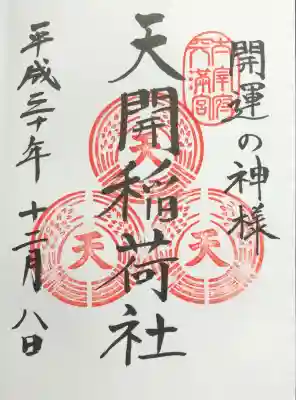 開運の神様
太宰府
天満宮
天開稲荷社
天
天
天
平成三十年 十二月 八日